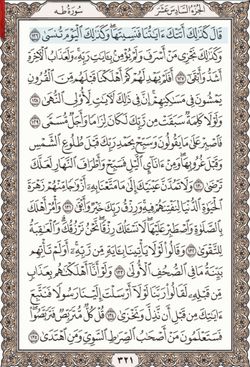 الجزء السادس عشر
سورة طه
قَالَ كَذَٰلِكَ أَتَتْكَ ءَايَٰتُنَا فَنَسِيتَهَا ۖ وَكَذَٰلِكَ ٱلْيَوْمَ تُنسَىٰ ١٢٦
وَكَذَٰلِكَ نَجْزِى مَنْ أَسْرَفَ وَلَمْ يُؤْمِنۢ بِـَٔايَٰتِ رَبِّهِۦ ۚ وَلَعَذَابُ ٱلْءَاخِرَةِ
أَشَدُّ وَأَبْقَىٰٓ ١٢٧ أَفَلَمْ يَهْدِ لَهُمْ كَمْ أَهْلَكْنَا قَبْلَهُم مِّنَ ٱلْقُرُونِ
يَمْشُونَ فِى مَسَٰكِنِهِمْ ۗ إِنَّ فِى ذَٰلِكَ لَـَٔايَٰتٍ لِّأُو۟لِى ٱلنُّهَىٰ
١٢٨ وَلَوْلَا كَلِمَةٌ سَبَقَتْ مِن رَّبِّكَ لَكَانَ لِزَامًا وَأَجَلٌ مُّسَمًّى ١٢٩
فَٱصْبِرْ عَلَىٰ مَا يَقُولُونَ وَسَبِّحْ بِحَمْدِ رَبِّكَ قَبْلَ طُلُوعِ ٱلشَّمْسِ
وَقَبْلَ غُرُوبِهَا ۖ وَمِنْ ءَانَآئِ ٱلَّيْلِ فَسَبِّحْ وَأَطْرَافَ ٱلنَّهَارِ لَعَلَّكَ
تَرْضَىٰ ١٣٠ وَلَا تَمُدَّنَّ عَيْنَيْكَ إِلَىٰ مَا مَتَّعْنَا بِهِۦٓ أَزْوَٰجًا مِّنْهُمْ زَهْرَةَ
ٱلْحَيَوٰةِ ٱلدُّنْيَا لِنَفْتِنَهُمْ فِيهِ ۚ وَرِزْقُ رَبِّكَ خَيْرٌ وَأَبْقَىٰ ١٣١ وَأْمُرْ أَهْلَكَ
بِٱلصَّلَوٰةِ وَٱصْطَبِرْ عَلَيْهَا ۖ لَا نَسْـَٔلُكَ رِزْقًا ۖ نَّحْنُ نَرْزُقُكَ ۗ وَٱلْعَٰقِبَةُ
لِلتَّقْوَىٰ ١٣٢ وَقَالُوا۟ لَوْلَا يَأْتِينَا بِـَٔايَةٍ مِّن رَّبِّهِۦٓ ۚ أَوَلَمْ تَأْتِهِم
بَيِّنَةُ مَا فِى ٱلصُّحُفِ ٱلْأُولَىٰ ١٣٣ وَلَوْ أَنَّآ أَهْلَكْنَٰهُم بِعَذَابٍ
مِّن قَبْلِهِۦ لَقَالُوا۟ رَبَّنَا لَوْلَآ أَرْسَلْتَ إِلَيْنَا رَسُولًا فَنَتَّبِعَ
ءَايَٰتِكَ مِن قَبْلِ أَن نَّذِلَّ وَنَخْزَىٰ ١٣٤ قُلْ كُلٌّ مُّتَرَبِّصٌ فَتَرَبَّصُوا۟ ۖ
فَسَتَعْلَمُونَ مَنْ أَصْحَٰبُ ٱلصِّرَٰطِ ٱلسَّوِىِّ وَمَنِ ٱهْتَدَىٰ ١٣٥
٣٢١